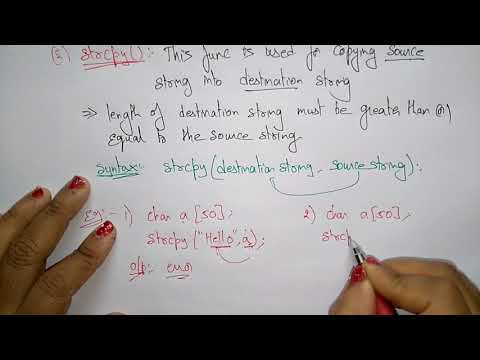 (3) strcpy():- This func is used for copying source
string into destination string
⇒ length of destination string must be greater than (or)
equal to the source string.
syntax:- strcpy(destination string, source string);
Eg:- 1) char a[50];
strcpy("Hello",a);
o/p:- error
2) char a[50];
strc